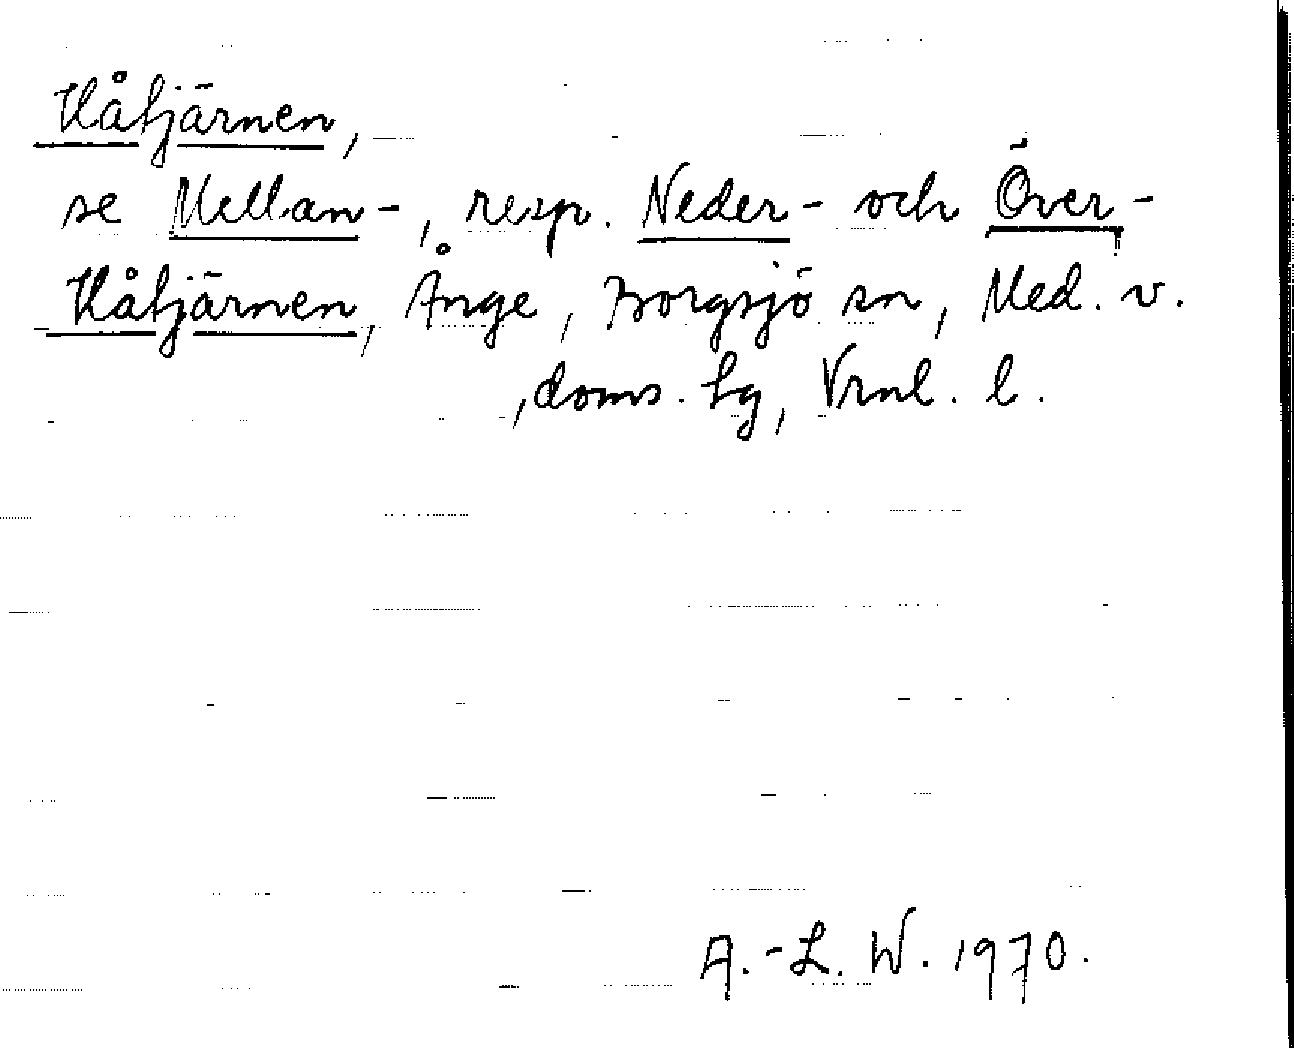 Håtjärnen,
se Mellan-, resp. Neder- och Över-
Håtjärnen, Ånge, Borgsjö sn, Med. v.
doms. tg, Vrnl. l.
A.-L. W. 1970.